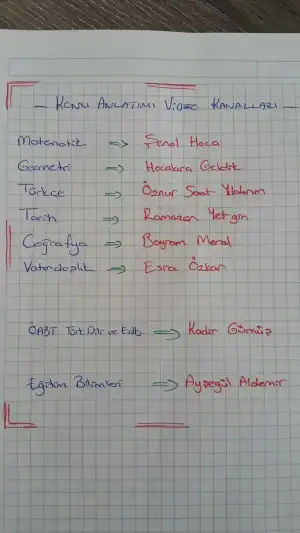 — KONU ANLATIMI VİDEO KANALLARI —
Matematik => Şenol Hoca
Geometri => Hocalara Geldik
Türkçe => Öznur Saat Yıldırım
Tarih => Ramazan Yetgin
Coğrafya => Bayram Meral
Vatandaşlık => Esra Özkan
ÖABT Türk Dili ve Edb. => Kadir Gümüş
Eğitim Bilimleri => Ayşegül Aldemir